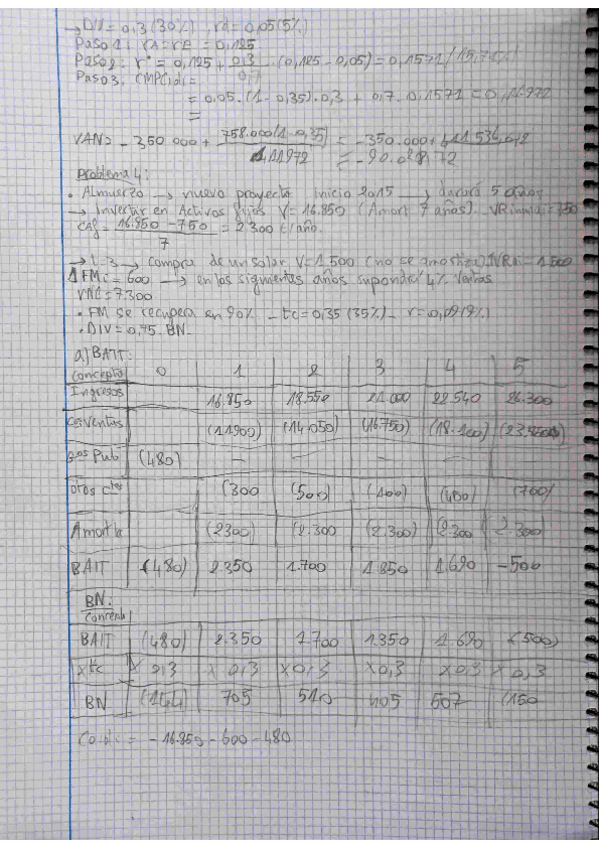 → D/V = 0,3 (30%) , rd = 0,05 (5%)
Paso 1: rA = rE = 0,125
Paso 2: r* = 0,125 + 0,3/0,7 · (0,125 - 0,05) = 0,1571 / 15,71%
Paso 3: CMPC
= 0,05 · (1 - 0,35) · 0,3 + 0,7 · 0,1571 = 0,11972
=
VAN = -350.000 + 758.000 (1 - 0,35) / 1,11972 = -350.000 +
= -90.0 72
Problema 4:
• Almuerzo → nuevo proyecto inicio 2015 → durará 5 años
→ Invertir en Activos fijos V = 16.850 (Amort 7 años). VR 750
CAf = 16.850 - 750 / 7 = 2300 €/año.
→ t=3 → compra de un solar V = 1.500 (no se amortiza) 1.500
Δ FMc = 600 → en los siguientes años supondrá 4% Ventas
VRC = 7.300
• FM se recupera en 90% - tc = 0,35 (35%) - r = 0,09 (9%)
• DIV = 0,75 BN.
a) BAIT:
Concepto 0 1 2 3 4 5
Ingresos 16.850 18.550 21.000 22.540 26.300
C.Ventas (11900) (14.050) (16.750) (18.100)
Gas Pub (480) - - - -
otros (300 (500) (400) (400) (700)
Amort (2300) (2.300 (2.300) (2.300 2.300
BAIT (480) 2350 1.700 1.350 1.690 -500
BN.
Concepto
BAIT (480) 2.350 1.700 1.350 1.690 (500)
x tc x 0,3 x 0,3 x 0,3 x 0,3 x 0,3 x 0,3
BN (144) 705 510 405 507 (150
= -16.850 - 600 - 480